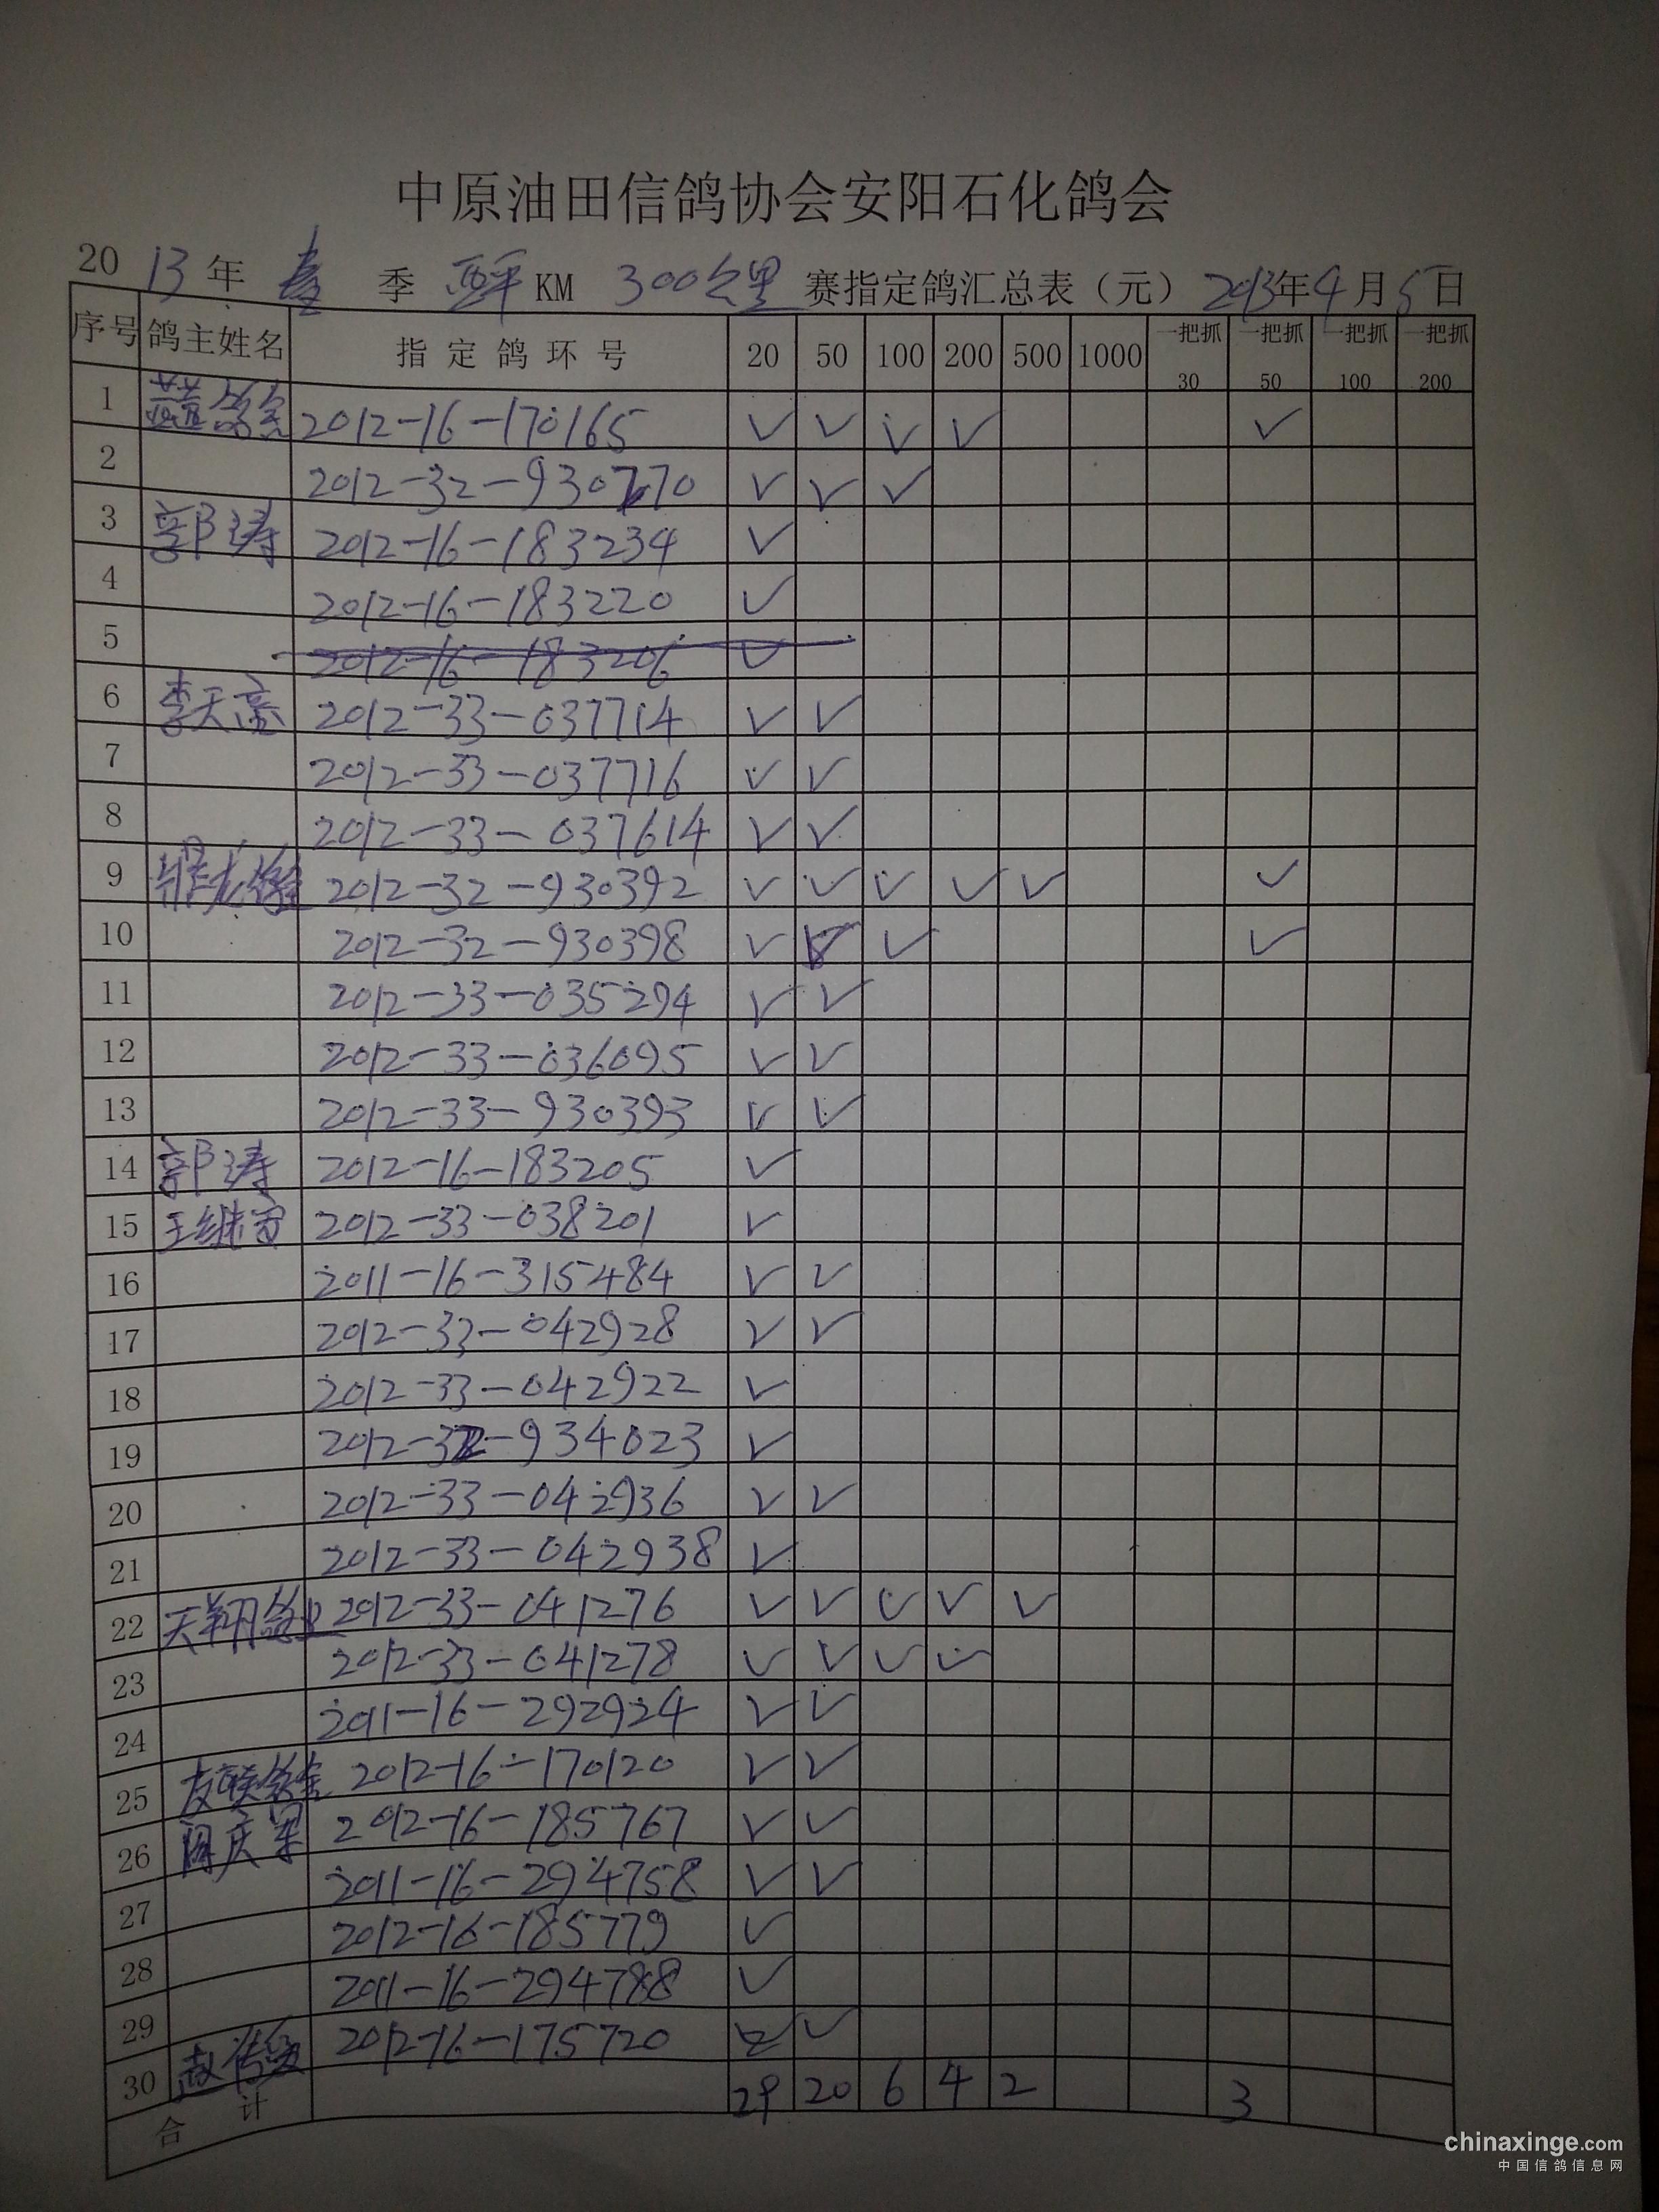 中原油田信鸽协会安阳石化鸽会
2013年 春 季 西平 KM 300公里 赛指定鸽汇总表（元） 2013年4月5日
序号 鸽主姓名 指定鸽环号 20 50 100 200 500 1000 一把抓30 一把抓50 一把抓100 一把抓200
1 鸽舍 2012-16-170165 ✓ ✓ ✓ ✓ ✓
2 2012-32-930770 ✓ ✓ ✓
3 郭涛 2012-16-183234 ✓
4 2012-16-183220 ✓
5 2012-16-183206 ✓
6 李天亮 2012-33-037714 ✓ ✓
7 2012-33-037716 ✓ ✓
8 2012-33-037614 ✓ ✓
9 2012-32-930392 ✓ ✓ ✓ ✓ ✓ ✓
10 2012-32-930398 ✓ ✓ ✓ ✓
11 2012-33-035294 ✓ ✓
12 2012-33-036095 ✓ ✓
13 2012-33-930393 ✓ ✓
14 郭涛 2012-16-183205 ✓
15 2012-33-038201 ✓
16 2011-16-315484 ✓ ✓
17 2012-33-042928 ✓ ✓
18 2012-33-042922 ✓
19 2012-32-934023 ✓
20 2012-33-042936 ✓ ✓
21 2012-33-042938 ✓
22 天翔鸽业 2012-33-041276 ✓ ✓ ✓ ✓ ✓
23 2012-33-041278 ✓ ✓ ✓ ✓
24 2011-16-292924 ✓ ✓
25 友联鸽舍 2012-16-170120 ✓ ✓
26 闫庆军 2012-16-185767 ✓ ✓
27 2011-16-294758 ✓ ✓
28 2012-16-185779 ✓
29 2011-16-294788 ✓
30 2012-16-175720 ✓ ✓
合计 29 20 6 4 2 3
chinaxinge.com
中国信鸽信息网